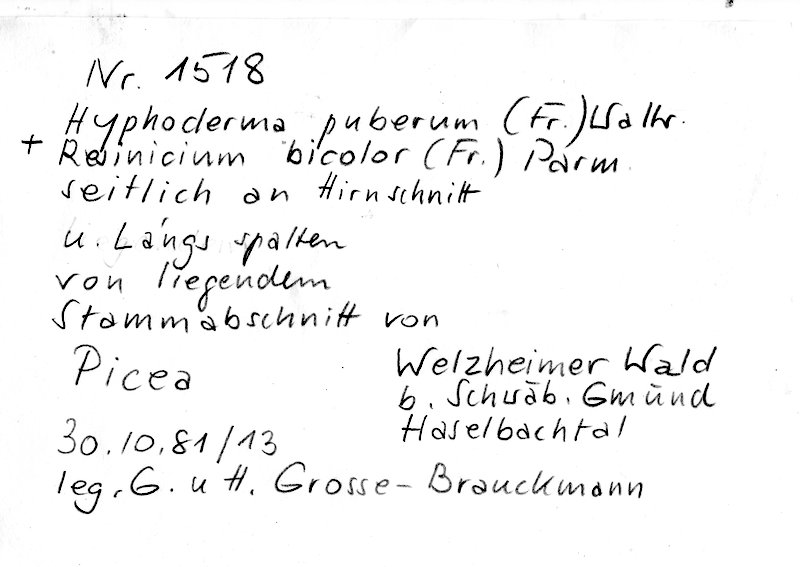 Nr. 1518
Hyphoderma puberum (Fr.) Wallr.
+ Resinicium bicolor (Fr.) Parm.
seitlich an Hirnschnitt
u. Längs spalten
von liegendem
Stammabschnitt von
Picea
Welzheimer Wald
b. Schwäb. Gmünd
Haselbachtal
30.10.81/13
leg. G. u H. Grosse-Brauckmann